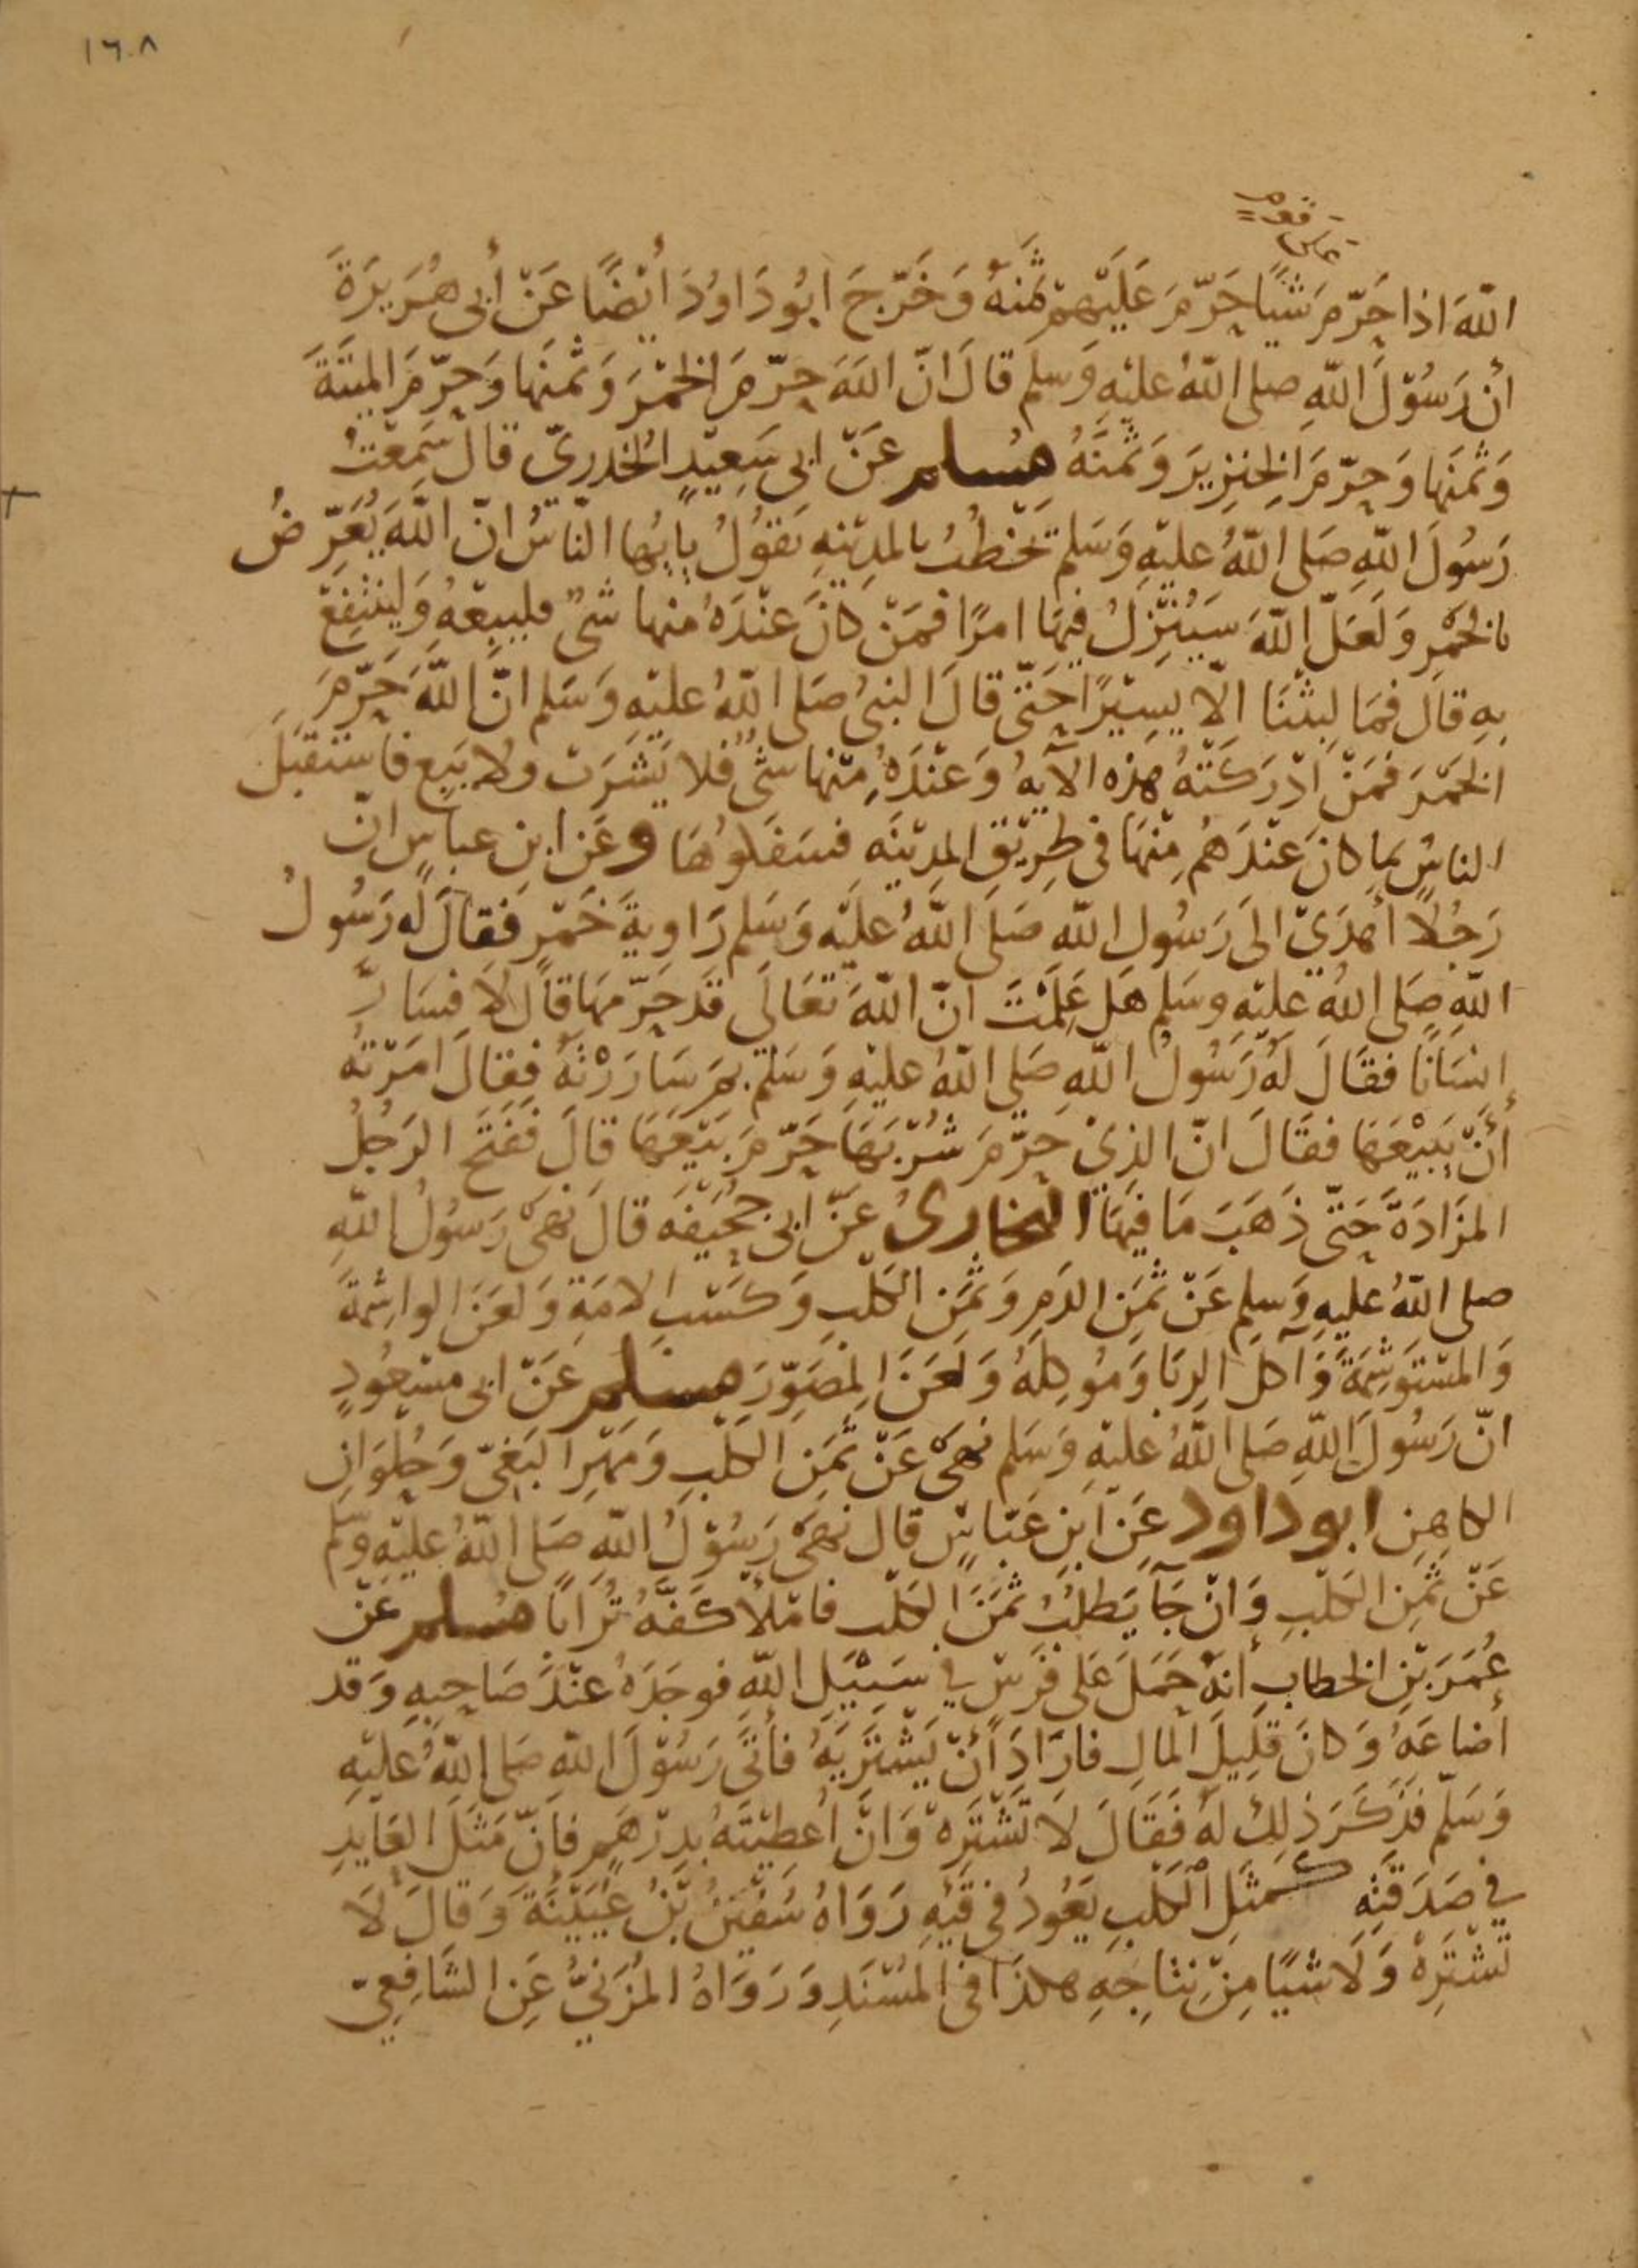 ١٦٠٨
على قوم
اللّهَ اذا حَرّمَ شيًا حَرّمَ عَلَيْهمْ ثمَنهُ وَخَرّجَ ابُودَاوُدَ ايْضًا عَنْ أبى هُرَيرَةَ
أن رَسُوْلَ اللّهِ صلى اللّهُ عليْهِ وَسلم قالَ انّ اللّهَ حرّمَ الخمْرَ وَثمنَها وَحرّمَ الميتَةَ
وَثمنَها وَحرّمَ الخِنزِيرَ وَثمنَهُ مُسلم عَنْ ابى سَعِيْدٍ الخُدرىّ قالَ سَمِعْتُ
رَسُولَ اللّهِ صَلى اللّهُ عليْهِ وَسَلم يخْطُبُ بالمدِيْنهِ يَقوُلُ يايُها النّاسُ انّ اللّهَ يُعَرّضُ
بالخمْرِ وَلَعَلّ اللّهَ سَيُنْزِلُ فيهَا امرًا فمَنْ كانَ عنْدَهُ منها شىٌ فليبِعْهُ وَليَنْتفِعْ
بهِ قالَ فمَا لبثْنَا الّا يسِيْرًا حَتّى قالَ النبىُ صَلى اللّهُ عليْهِ وَسَلم انّ اللّهَ حَرّمَ
الخمْرَ فمَنْ ادْرَكَتْهُ هذه الآيهُ وَعنْدَهُ منْها شىٌ فلا يَشْرَبْ ولا يَبِع فاستقبَلَ
الناسُ بما كانَ عنْدَهُم منْهَا فى طرِيْقِ المدِيْنَهِ فسَفَكوُهَا وعَن ابنِ عباسٍ انّ
رَجُلًا أهدَىّ الَى رَسُولِ اللّه صَلَى اللّهُ عليْه وَسَلم رَاويةَ خَمْرٍ فقالَ له رَسُولُ
اللّهِ صَلى اللّهُ عليْه وسَلم هَل عَلِمْتَ انّ اللّهَ تعَالَى قَد حَرّمهَا قالَ لَا فسَارّ
إنسَانًا فقَالَ لَهُ رَسُولُ اللّهِ صَلى اللّهُ عليْهِ وَسَلم بمَ سَارَرْتَهُ فقِالَ امَرْتهُ
أنّ يَبِيْعَهَا فقَالَ انّ الذِىْ حرّمَ شُرْبَهَا حَرّمَ بَيْعَهَا قالَ فَفتَحَ الرَجُلُ
المزَادَةَ حَتّى ذَهَبَ مَا فيهَا البخارىُ عَنْ ابى جُحَيْفَه قالَ نهَىَ رَسُولُ اللّهِ
صلى اللّهُ عليهِ وَسلم عَنْ ثمَنِ الدَمِ وَثمَنِ الكلْبِ وَكَسْبِ الامَةِ وَلعَنَ الواشِمَةَ
وَالمسْتوَشِمَةَ وَآكلَ الرِبَا وَمُوكِلَهُ وَلعَنَ المصَوّرَ مسلم عَنْ ابى مسْعُودٍ
انّ رَسُولَ اللّهِ صَلى اللّهُ عليْهِ وَسَلم نهَىَ عَنْ ثمَنِ الكلْبِ وَمَهْرِ البَغِىّ وَحُلوَانِ
الكاهِنِ ابوداود عَنِ ابنِ عَبّاسٍ قالَ نهَىَ رَسُوْلُ اللّهِ صَلى اللّهُ عليْهِ وسّلم
عَنْ ثمَنِ الكلْبِ وَانْ جَآ يَطلُبُ ثمَنَ الكلْب فامْلأ كَفّهُ تُرَابًا مُسلم عَنْ
عُمَرَ بْنِ الخطابِ أنهُ حَمَلَ عَلى فرَسٍ فى سَبِيْلِ اللّهِ فوجَدَهُ عنْدَ صَاحبِهِ وَقد
أضاعَهُ وَكانَ قلِيلَ المَالِ فارَادَ أنْ يَشْتَرِيَهُ فأتَى رَسُوْلَ اللّهِ صَلى اللّهُ عَليْهِ
وَسَلّم فذَكَرَ ذلِكَ لهُ فَقَالَ لَا تشْتَرِهْ وَانْ أُعطيْتَهُ بدِرْهَمٍ فانّ مَثَلَ العَايدِ
فى صَدَقتِهِ كمثَلِ الكلْبِ يَعُودُ فى قيْهِ رَوَاهُ سُفيٰنُ بْنُ عُيَيْنَةَ وَقالَ لَا
تشْتَرِهْ وَلَا شيًا مِنْ نتاجِهِ هكذَا فى المسْنَدِ وَرَوَاهُ المُزَنىُّ عَنِ الشّافِعىّ